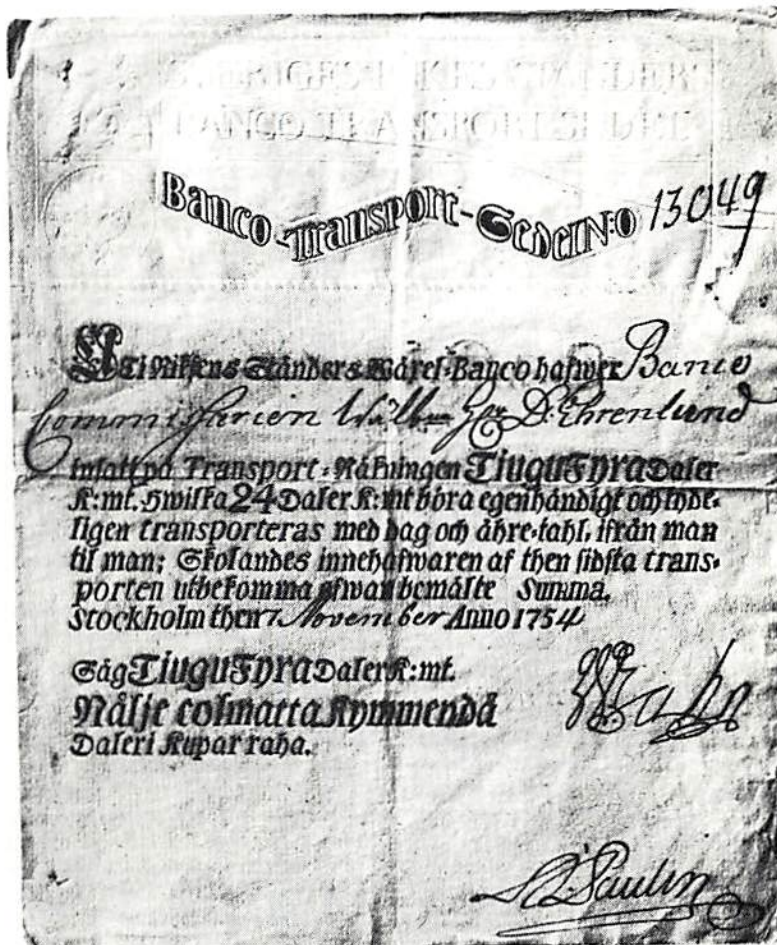 Banco-Transport-Sedel N:o 13049
Uti Riksens Ständers Wäxel-Banco hafwer Banco
Commissarien Wälb. H:r D. Ehrenlund
insatt på Transport-Räkningen TiuguFyra Daler
K:mt. Hwilka 24 Daler K:mt böra egenhändigt och tyde-
ligen transporteras med dag och åhre-tahl, ifrån man
til man; Skolandes innehafwaren af then sidsta trans-
porten utbekomma ofwanbemälte Summa.
Stockholm then 7 November Anno 1754
Säg TiuguFyra Daler K:mt.
Nälje colmatta Kymmendä
Daleri Kupar raha.